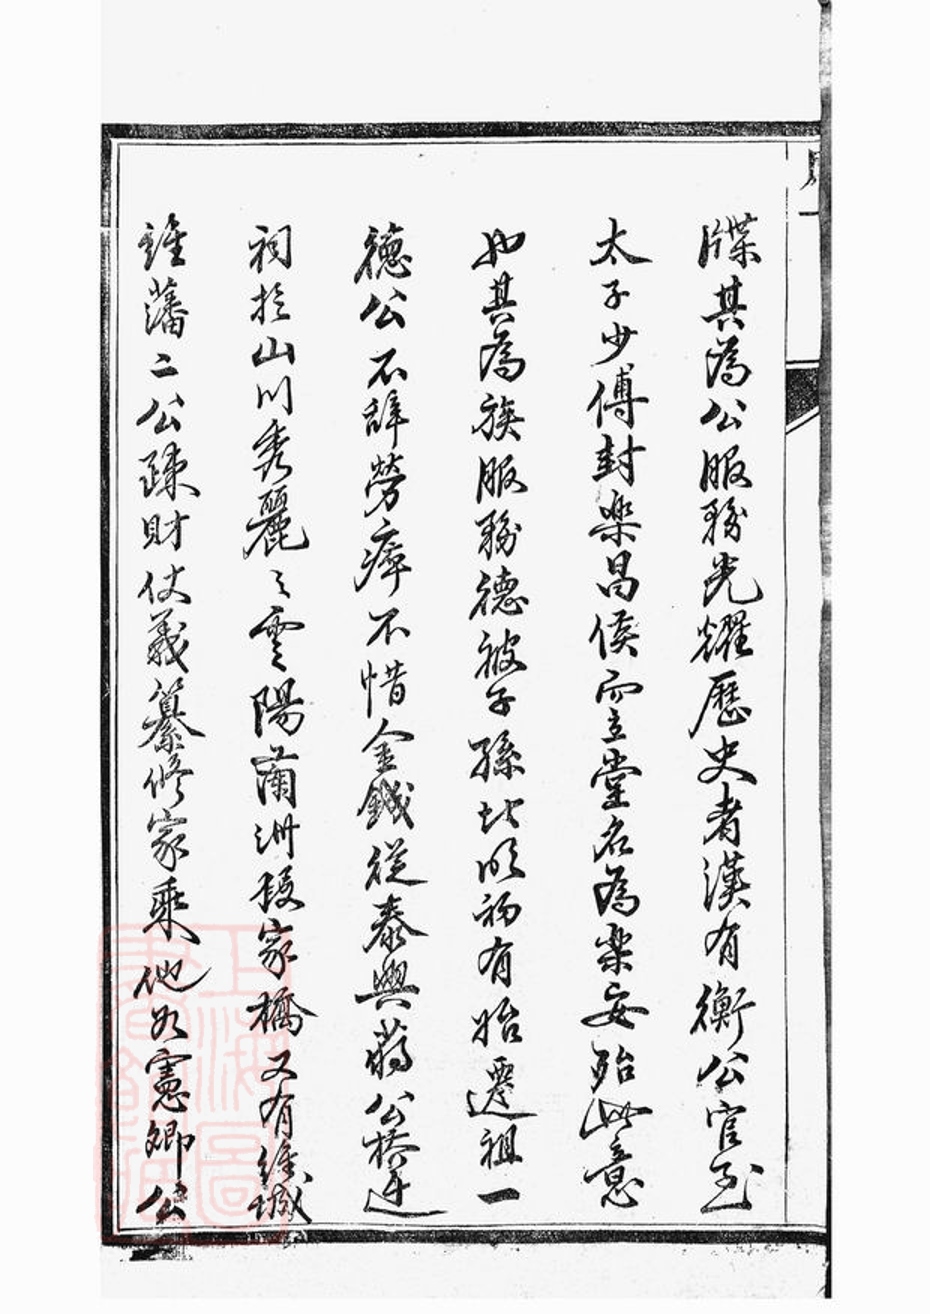 牒其為公服務光耀歷史者漢有衡公官至
太子少傅封樂昌侯而立堂名為樂安殆此意
也其為族服務德被子孫者明初有始遷祖一
德公不辭勞瘁不惜金錢從泰興蔣公橋迁
祠於山川秀麗之雲陽蘭洲段家橋又有維城
維藩二公疎財仗義纂修家乘他如憲卿公
上海圖書館藏